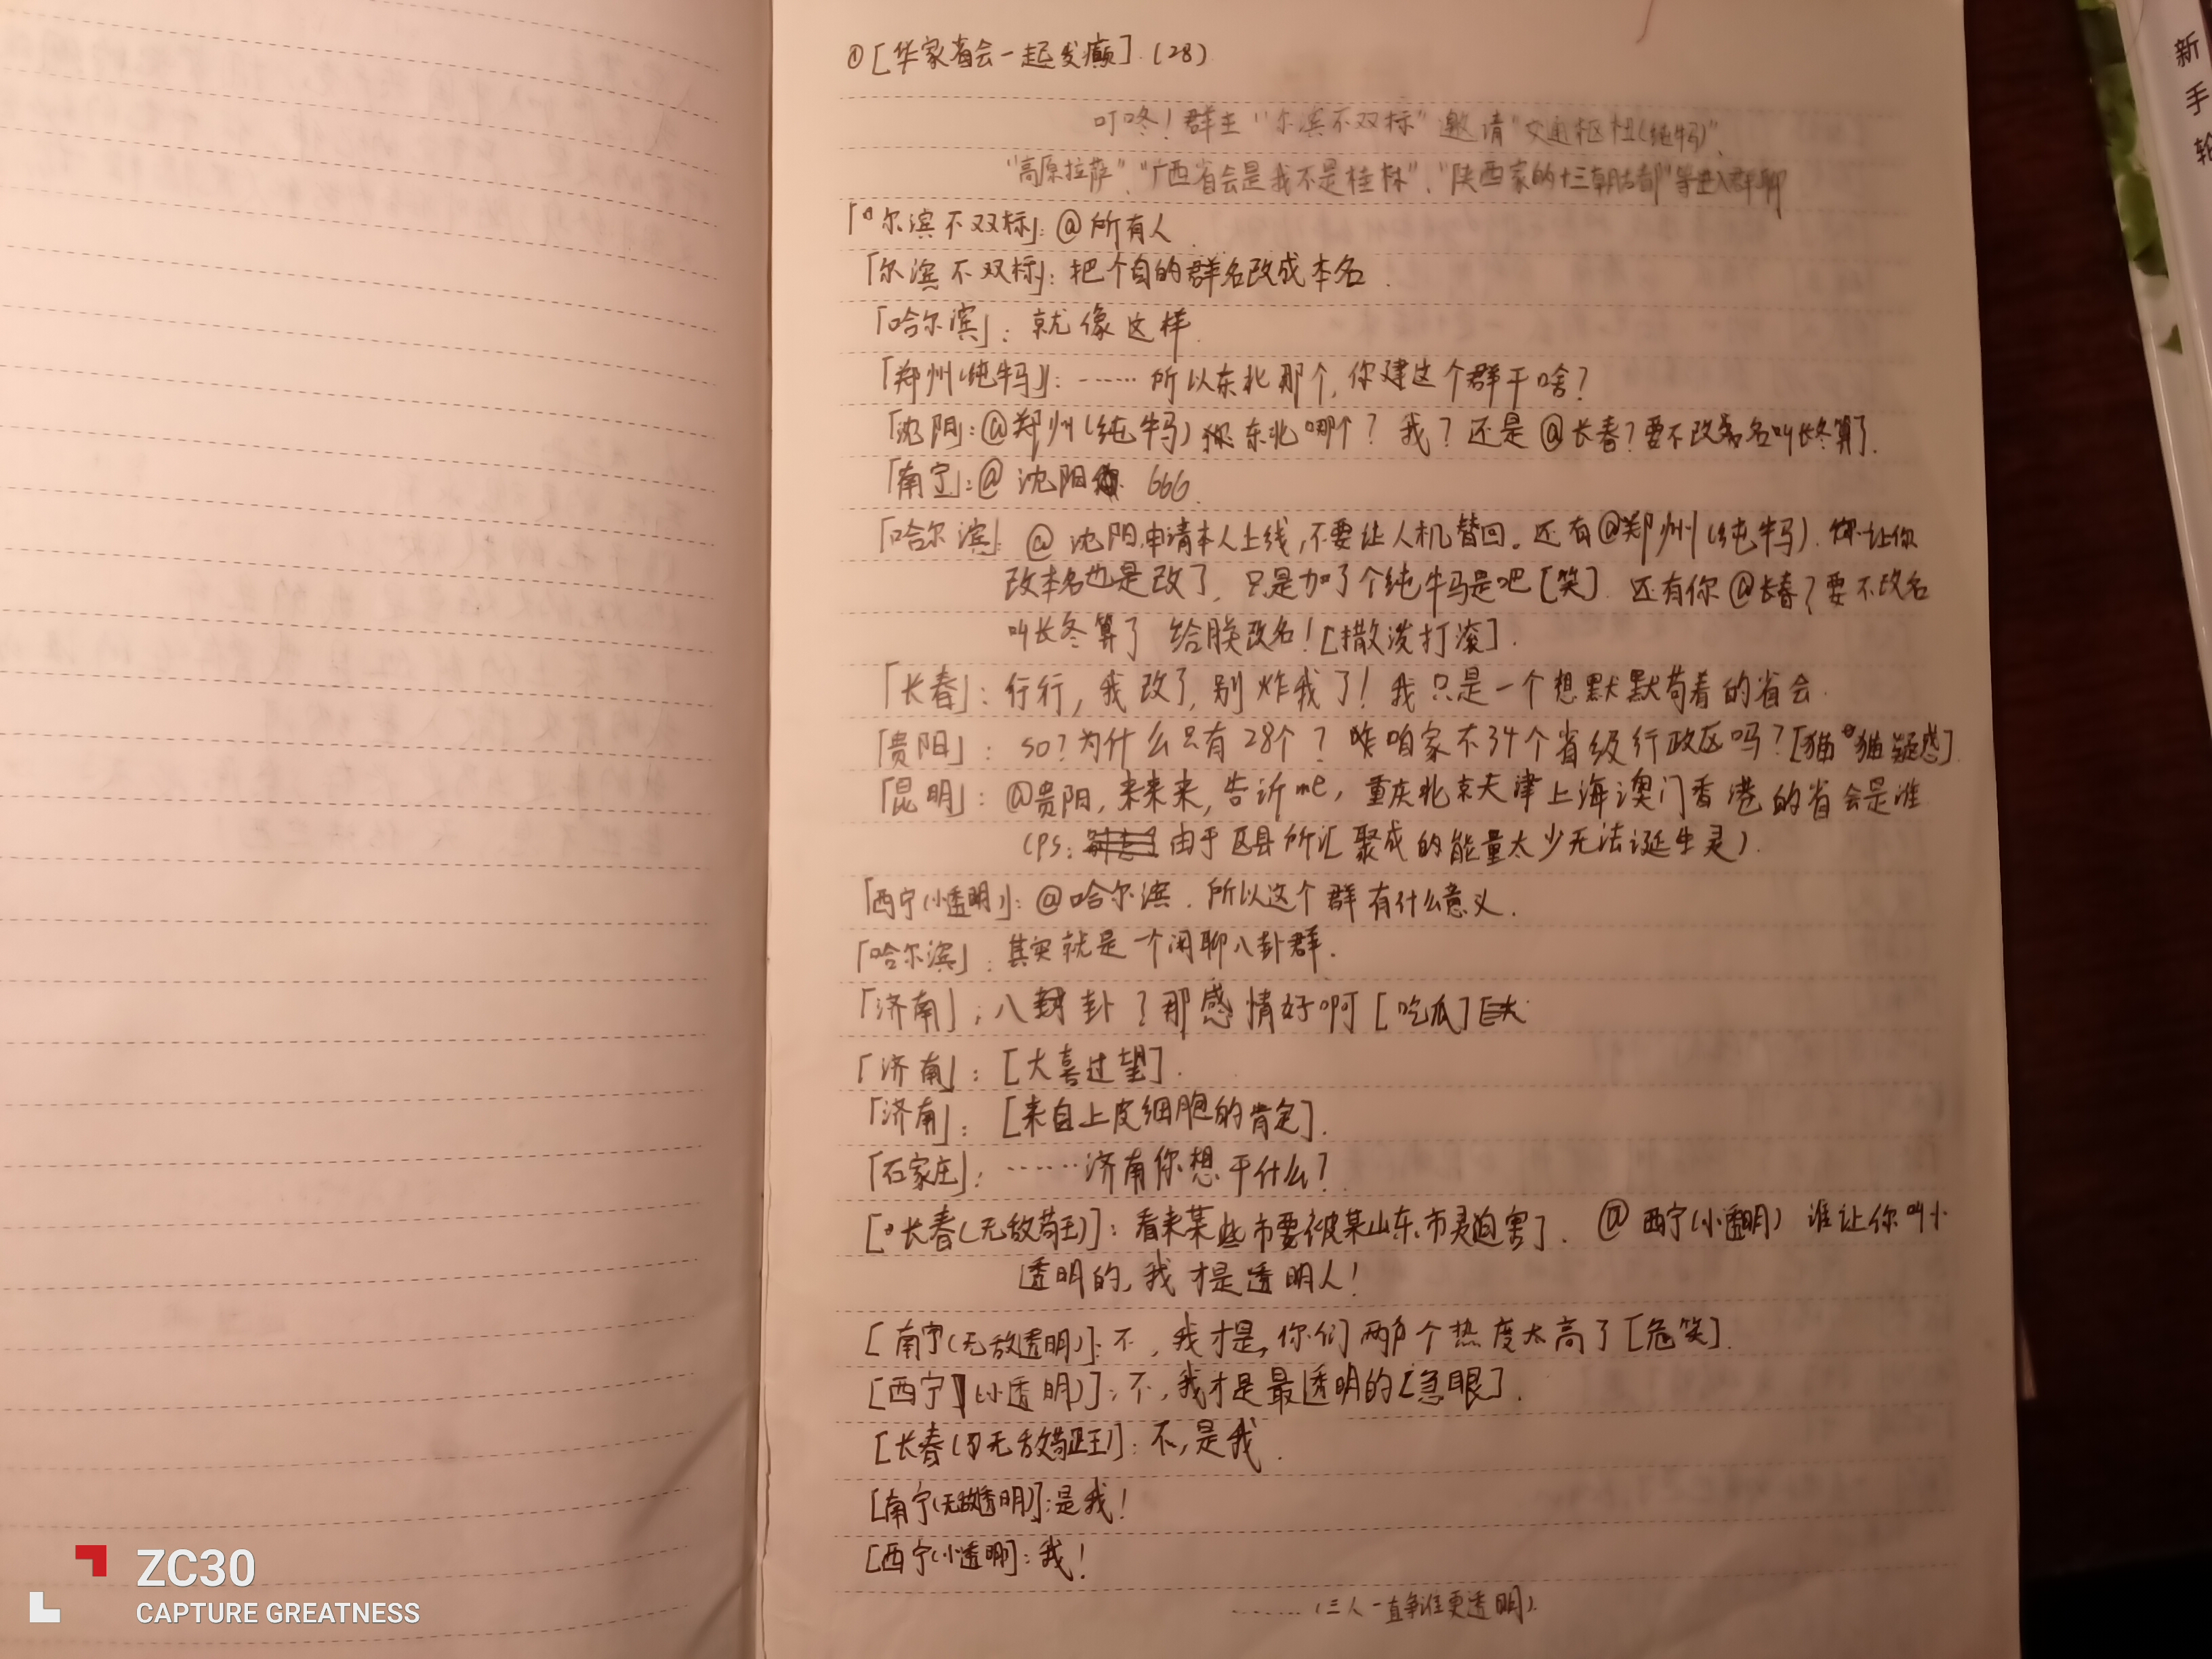 ①[华家省会一起发癫].(28)
叮咚！群主"尔滨不双标"邀请"交通枢杻(纯牛马)"、
"高原拉萨"、"广西省会是我不是桂林"、"陕西家的十三朝古都"等进入群聊
「尔滨不双标」：@所有人
「尔滨不双标」：把个自的群名改成本名.
「哈尔滨」：就像这样.
「郑州(纯牛马)」：……所以东北那个,你建这个群干啥？
「沈阳」：@郑州(纯牛马) 东北哪个？我？还是@长春？要不改名叫长冬算了.
「南宁」：@沈阳 666.
「哈尔滨」 @沈阳,申请本人上线,不要让人机替回。还有@郑州(纯牛马).让你
改本名也是改了,只是加了个纯牛马是吧[笑].还有你@长春？要不改名
叫长冬算了 给朕改名！[撒泼打滚].
「长春」：行行,我改了,别炸我了！我只是一个想默默苟着的省会.
「贵阳」：so？为什么只有28个？咋咱家不34个省级行政区吗？[猫猫疑惑].
「昆明」：@贵阳,来来来,告诉me,重庆北京天津上海澳门香港的省会是谁
(PS：由于区县所汇聚成的能量太少无法诞生灵).
「西宁(小透明)」：@哈尔滨.所以这个群有什么意义.
「哈尔滨」：其实就是一个闲聊八卦群.
「济南」：八卦？那感情好啊[吃瓜]
「济南」：[大喜过望].
「济南」：[来自上皮细胞的肯定].
「石家庄」：……济南你想干什么？
[长春(无敌苟王)]：看来某些市要被某山东市灵迫害了.@西宁(小透明) 谁让你叫小
透明的,我才是透明人！
[南宁(无敌透明)]：不,我才是,你们两个热度太高了[危笑].
[西宁(小透明)]：不,我才是最透明的[急眼].
[长春(无敌苟王)]：不,是我.
[南宁(无敌透明)]：是我！
[西宁(小透明)]：我！
……(三人一直争谁更透明).
新手
ZC30
CAPTURE GREATNESS